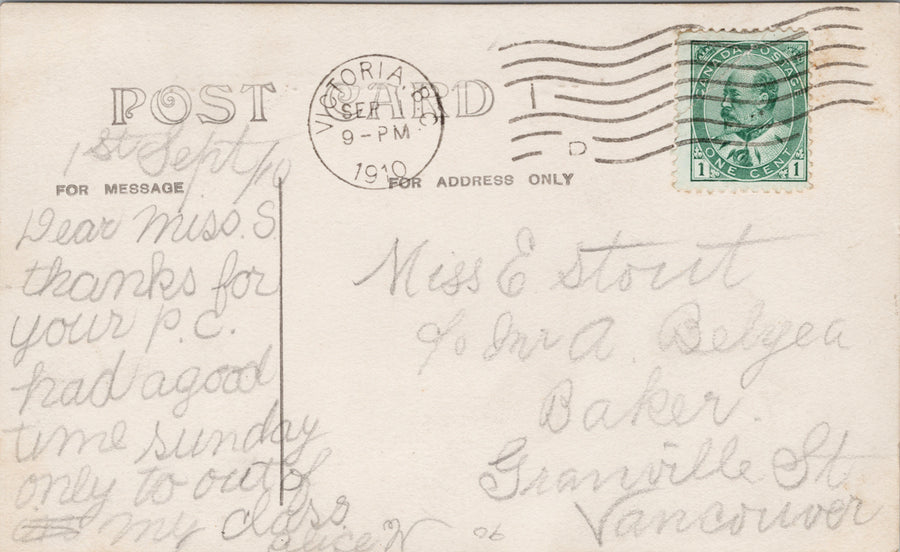 POST CARD
VICTORIA, B.C.
SEP 1
9-PM
1910
D
CANADA POSTAGE
1 ONE CENT 1
FOR MESSAGE
FOR ADDRESS ONLY
1st Sept/10
Dear Miss. S.
thanks for
your P.C.
had a good
time sunday
only to out of
my class
Alice W
Miss E Stout
c/o Mr A. Belyea
Baker.
Granville St
Vancouver